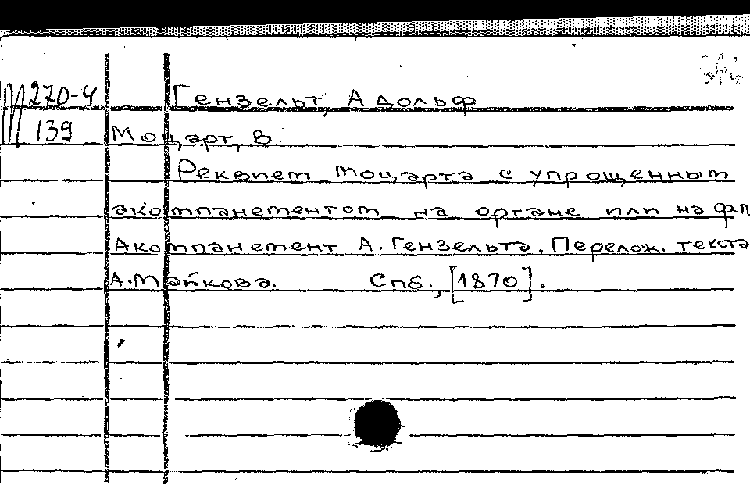 М 270-4 Гензельт, Адольф
139 Моцарт, В.
Реквием Моцарта с упрощенным
акомпанементом на органе или на фп
Акомпанемент А. Гензельта. Перелож. текста
А. Майкова. Спб., [1870].